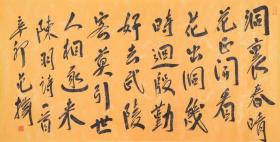 洞裏春晴
花正開看
花出洞幾
時迴殷勤
好去武陵
客莫引世
人相逐來
陳羽詩一首
辛卯 范揚